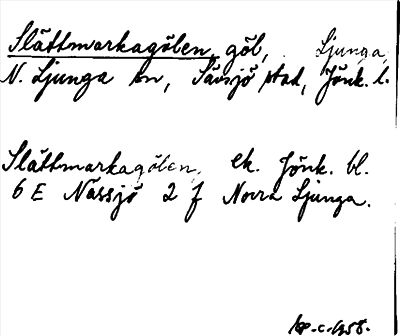 Slättmarkagölen, göl, Ljunga,
N. Ljunga sn, Sävsjö stad, Jönk. l.
Slättmarkagölen, ek. Jönk. bl.
6 E Nässjö 2 f Norra Ljunga.